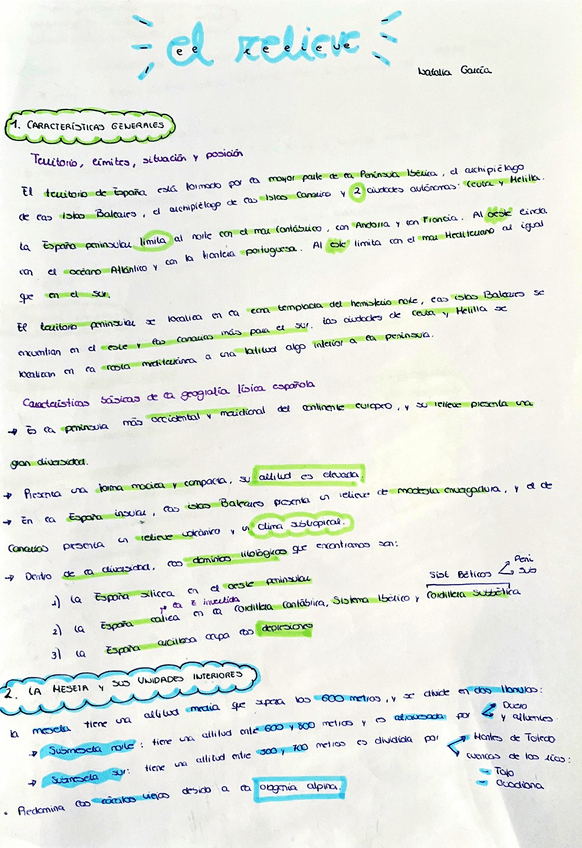 el relieve
Natalia García
1. CARACTERÍSTICAS GENERALES
Territorio, límites, situación y posición
El territorio de España está formado por la mayor parte de la Península Ibérica, el archipiélago
de las Islas Baleares, el archipiélago de las Islas Canarias y 2 ciudades autónomas: Ceuta y Melilla.
La España peninsular limita al norte con el mar Cantábrico, con Andorra y con Francia. Al oeste linda
con el océano Atlántico y con la frontera portuguesa. Al este limita con el mar Mediterráneo al igual
que en el sur.
El territorio peninsular se localiza en la zona templada del hemisferio norte, las islas Baleares se
encuentran en el este y las canarias más para el sur. Las ciudades de Ceuta y Melilla se
localizan en la costa mediterránea a una latitud algo inferior a la península.
Características básicas de la geografía física española
→ Es la península más occidental y meridional del continente europeo, y su relieve presenta una
gran diversidad.
→ Presenta una forma maciza y compacta, su altitud es elevada.
→ En la España insular, las islas Baleares presentan un relieve de modesta envergadura, y el de
Canarias presenta un relieve volcánico y un clima subtropical.
→ Dentro de la diversidad, los dominios litológicos que encontramos son:
1) La España silícea en el oeste peninsular
Sist. Béticos Peni
Sub
↑ la z invertida
2) La España caliza en la Cordillera Cantábrica, Sistema Ibérico y Cordillera Subbética
3) La España arcillosa ocupa las depresiones
2. LA MESETA Y SUS UNIDADES INTERIORES
La meseta tiene una altitud media que supera los 600 metros, y se divide en dos llanuras:
→ Submeseta norte: tiene una altitud entre 600 y 800 metros y es atravesada por Duero
y afluentes
→ Submeseta sur: tiene una altitud entre 500 y 700 metros es dividida por Montes de Toledo
cuencas de los ríos:
- Tajo
- Guadiana
• Predomina los zócalos viejos debido a la orogenia alpina.